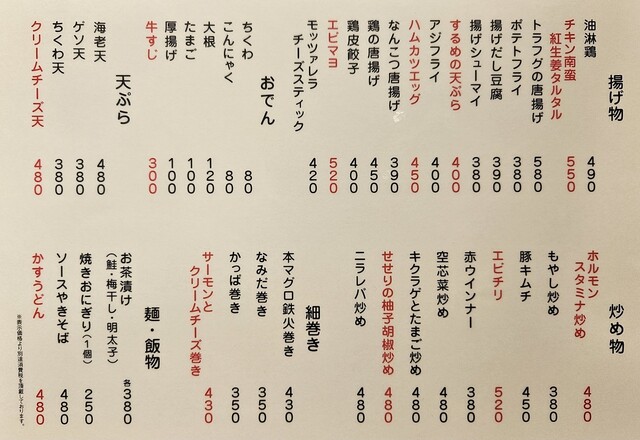 揚げ物
油淋鶏 490
チキン南蛮
紅生姜タルタル 550
トラフグの唐揚げ 580
ポテトフライ 380
揚げだし豆腐 390
揚げシューマイ 380
するめの天ぷら 400
アジフライ 400
ハムカツエッグ 450
なんこつ唐揚げ 390
鶏の唐揚げ 450
鶏皮餃子 400
エビマヨ 520
モッツァレラ
チーズスティック 420
おでん
ちくわ 80
こんにゃく 80
大根 120
たまご 100
厚揚げ 100
牛すじ 300
天ぷら
海老天 480
ゲソ天 380
ちくわ天 380
クリームチーズ天 480
炒め物
ホルモン
スタミナ炒め 480
もやし炒め 380
豚キムチ 450
エビチリ 520
赤ウインナー 380
空芯菜炒め 480
キクラゲとたまご炒め 480
せせりの柚子胡椒炒め 480
ニラレバ炒め 480
細巻き
本マグロ鉄火巻き 430
なみだ巻き 350
かっぱ巻き 350
サーモンと
クリームチーズ巻き 430
麺・飯物
お茶漬け
(鮭・梅干し・明太子) 各380
焼きおにぎり(1個) 250
ソースやきそば 480
かすうどん 480
※表示価格より別途消費税を頂戴しております。